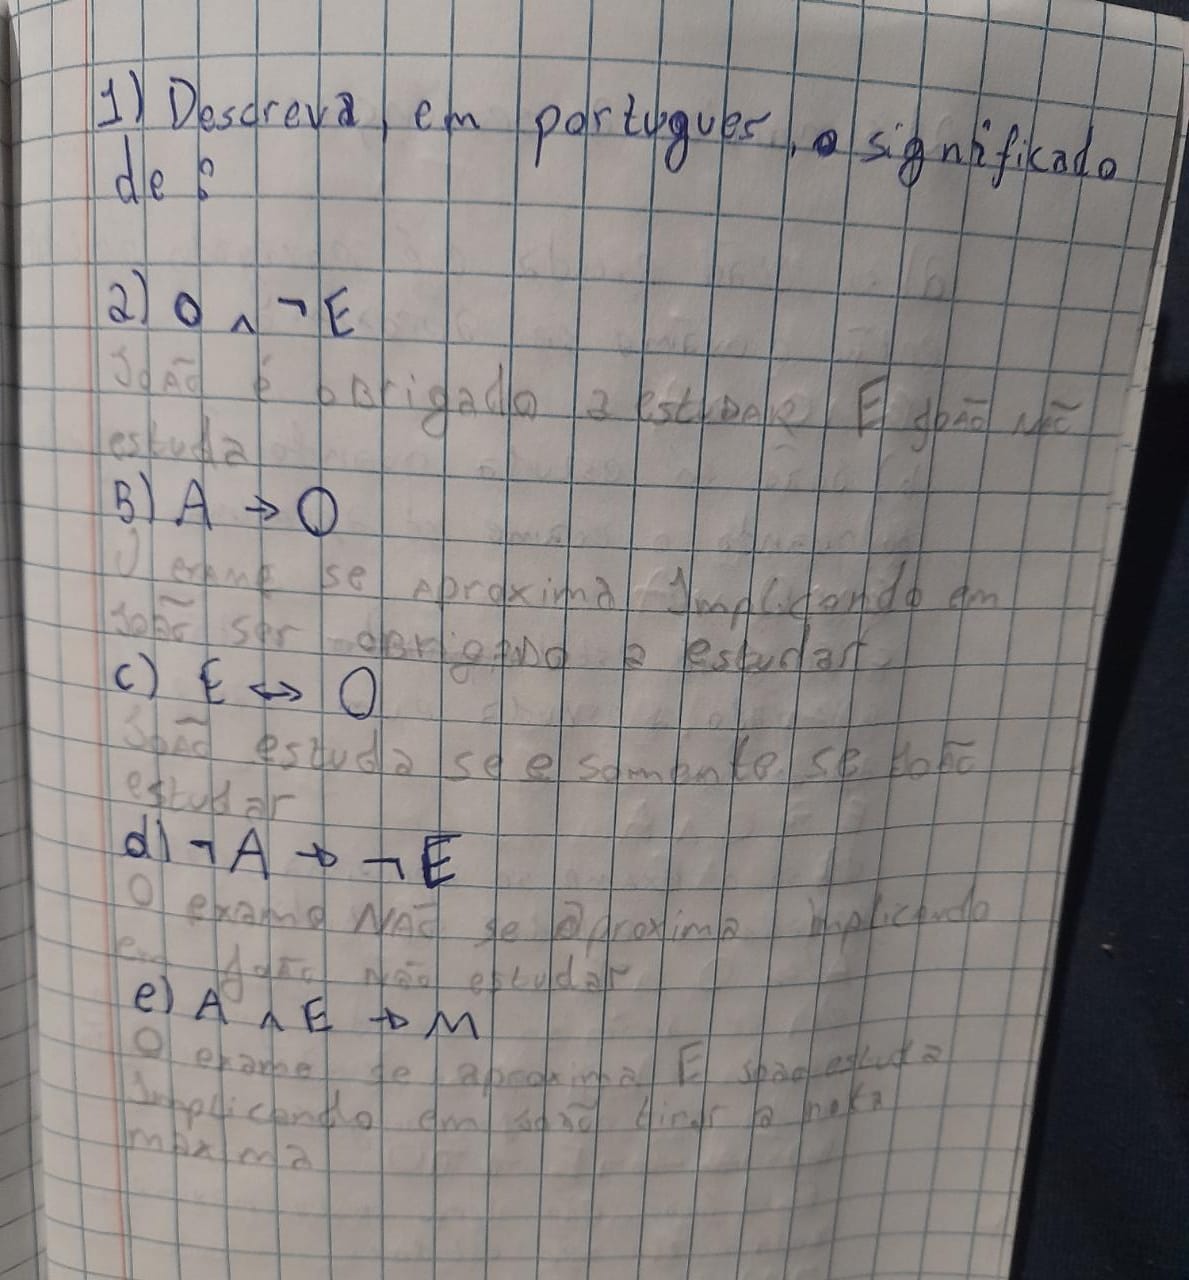 1) Descreva, em portugues, o significado
de:
a) O ∧ ¬E
João é obrigado a estudar E João não
estuda
B) A → O
O exame se aproxima Implicando em
João ser obrigado a estudar
c) E ↔ O
João estuda se e somente se João
estudar
d) ¬A → ¬E
O exame NÃO se aproxima implicando
em João não estudar
e) A ∧ E → M
O exame se aproxima E João estuda
Implicando em João tirar a nota
maxima